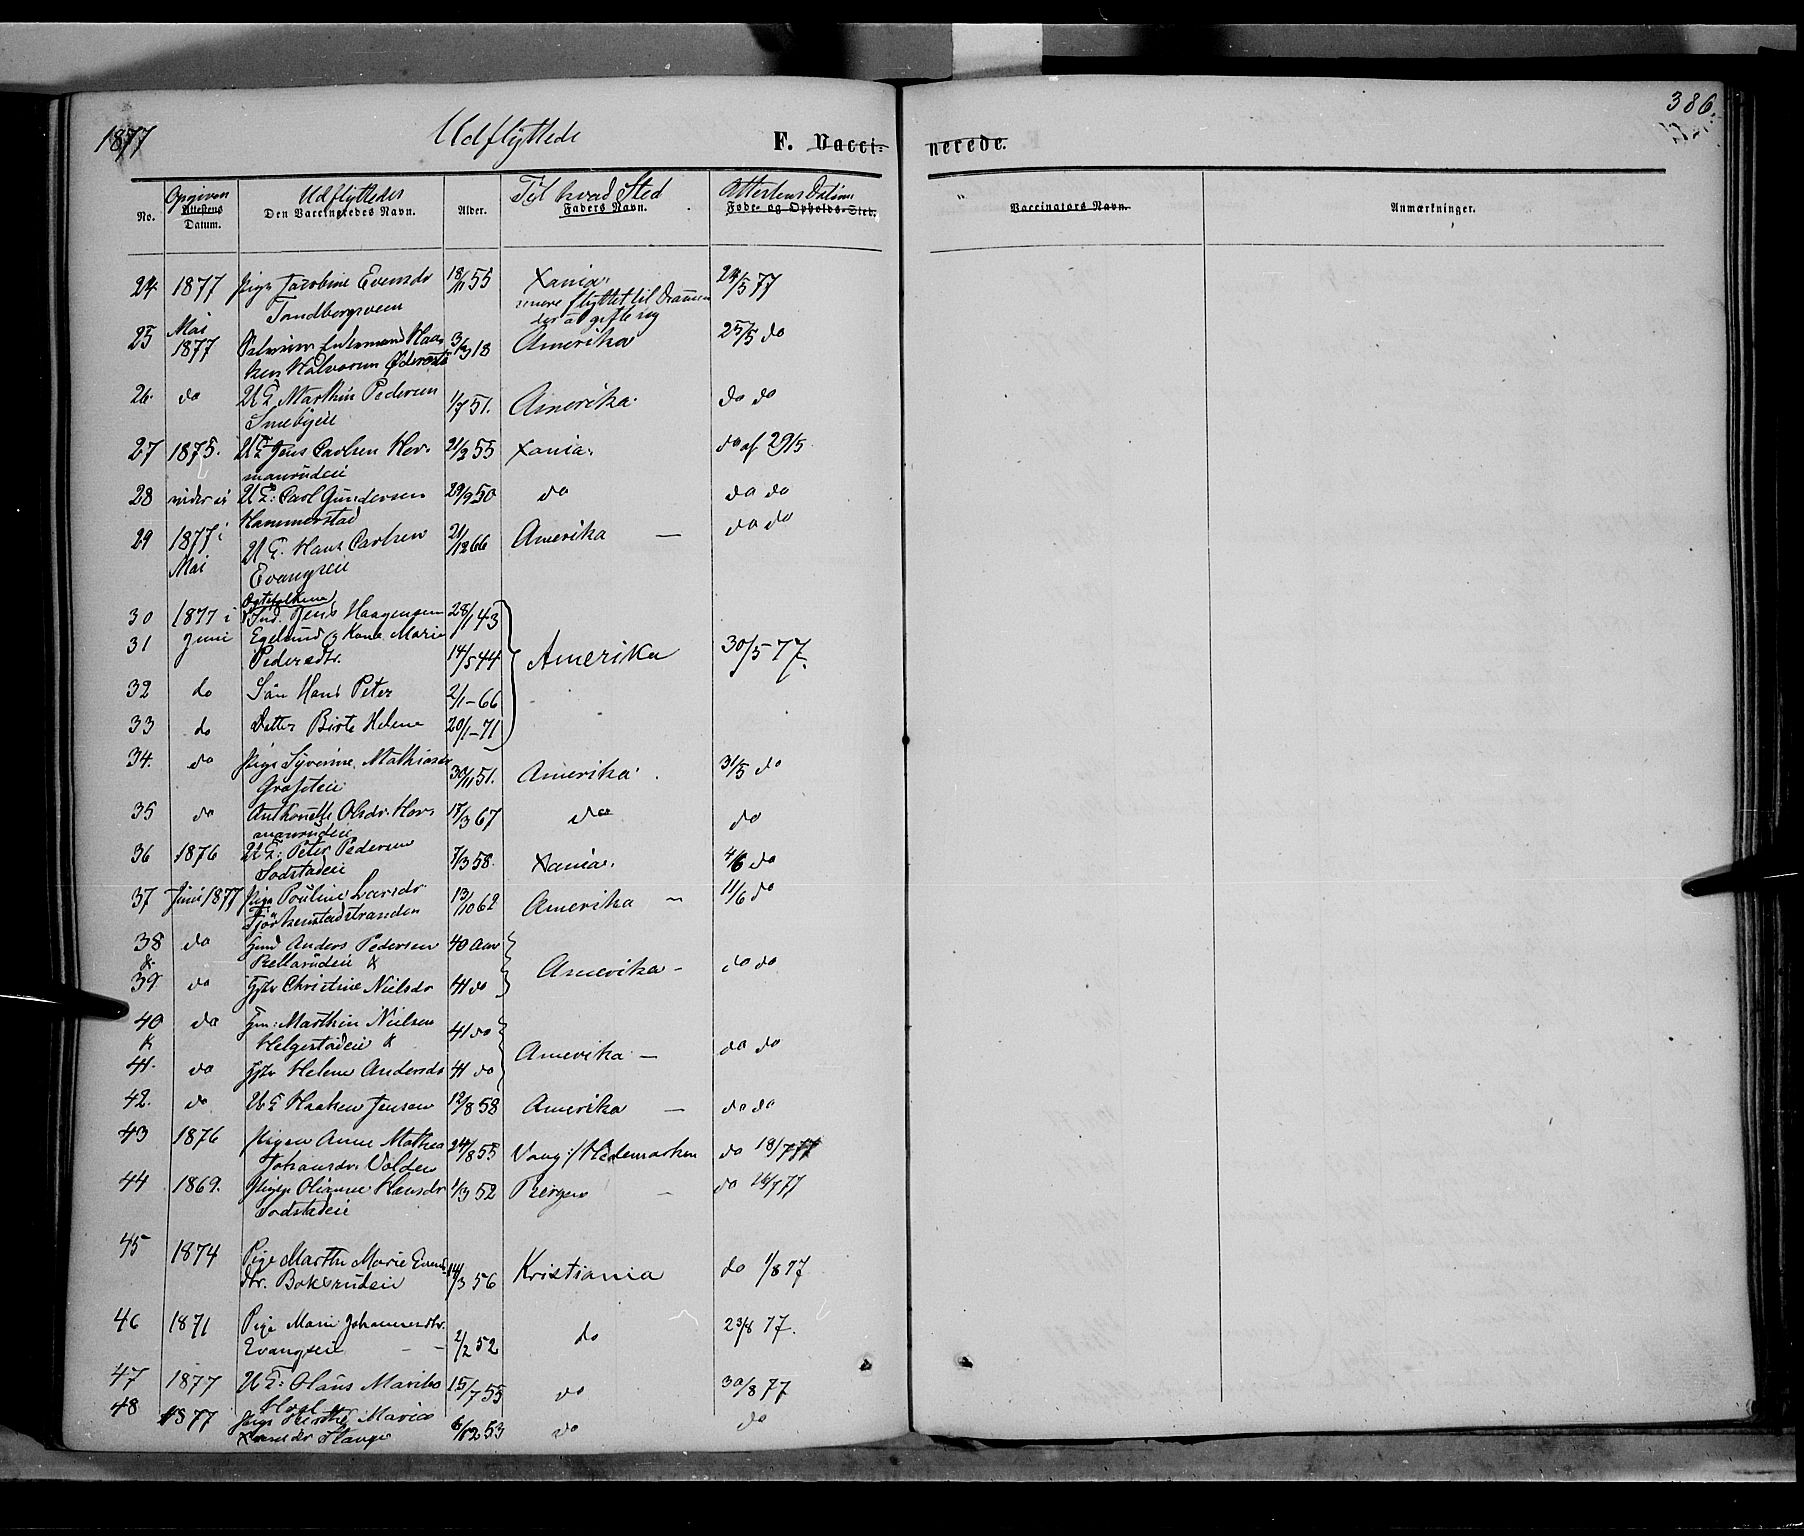 1877 Udflyttede F. Vacci- nerede. 386.
Opgiven Udflyttedes Til hvad Sted Attestens Datum
No. Attestens Datum. Den Vaccineredes Navn. Alder. Faders Navn. Føde- og Opholds-Sted. Vaccinators Navn. Anmærkninger.
24 1877 Pige Jacobine Evensdr 18/11 55 Xania, 24/5 77
Tandbergsveen senere flyttet til Drammen
der at gifte sig
25 Mai 1877 Haa- 3/3 18 Amerika 25/5 do
ken Halvorsen
26. do U.K. Marthin Pedersen 1/7 51. Amerika. do do
Smebyeie
27 1875. U.K. Jens Carlsen Her- 21/2 55 Xania. do af 29/5
manrudeie
28 U.K: Carl Gundersen 29/9 50 do do do
Hammerstad
29 1877 i U.K. Hans Carlsen 21/12 66 Amerika — do do
Mai Evangseie
Ægtefolkene
30 1877 i Ind. Jens Haagensen 28/1 43
31 Juni Egelund og Kone Marie Amerika 30/5 77.
Pedersdtr. 14/5 44
32 do Søn Hans Peter 2/1-66
33 do Datter Birte Helene 20/1-71
34. do Pige Syverine Mathiasdr 30/11 51. Amerika. 31/5 do
35 do Anthonette Olsdr. Her- 17/3 67 do do
manrudeie
36 1876 U.K: Peter Pedersen 7/3 58. Xania. 4/6 do
Sodstadeie
37 Juni 1877 Pige Pouline Larsdr. 13/10 62 Amerika — 11/6 do
38 do Anders Pedersen 40 Aar
& &
Amerika — do do
39 do Christine Nielsdr 41 do
40 do Marthin Nielsen 41 do
& Helgestadeie &
Amerika — do do
41. do Helene Andersdr 41 do
42. do U.K Haaken Jensen 12/8 58 Amerika — do do
43 1876 Pigen Anne Mathea 24/8 55 Vang /Hedemarken do 18/7 77
Johansdr. Volden
44 1869. Pigen Olianne Hansdr 1/3 52 Bergen — do 77
Sodstadeie
45 1874 Pige Marthe Marie Evens- 14/3 56 Kristiania do 1/8 77
dtr. Bakerudeie
46 1871 Pige Marie Johannesdtr. 2/2 52 do 23/8 77.
Evangseie
47 1877 U.K: Olaus 15/7 55 do 30/8 77
48 1877 Pige Marie 6/12 53 do do
Stange